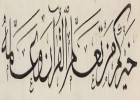 خيركم من تعلم القرآن وعلمه